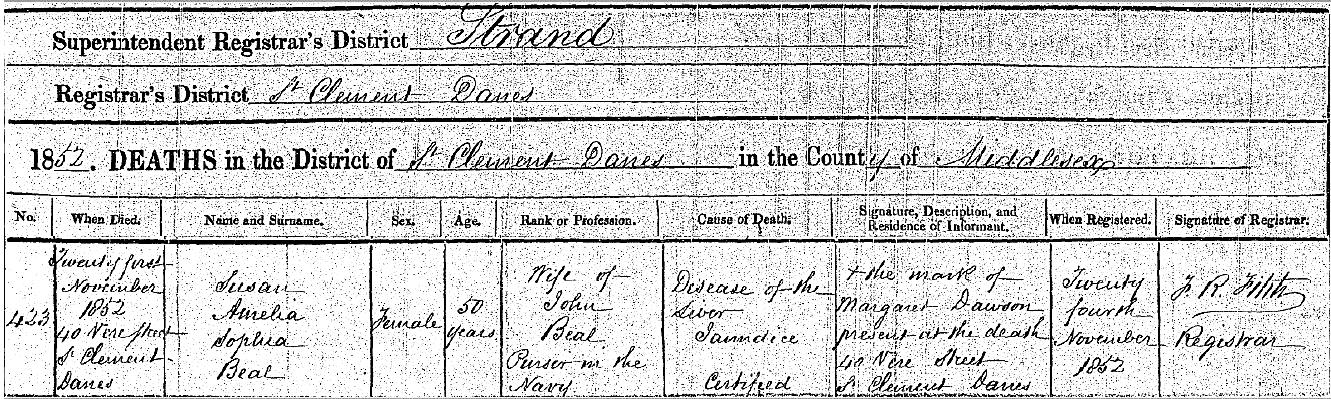 Superintendent Registrar's District Strand
Registrar's District St Clement Danes
1852. DEATHS in the District of St Clement Danes in the County of Middlesex
No. When Died. Name and Surname. Sex. Age. Rank or Profession. Cause of Death. Signature, Description, and Residence of Informant. When Registered. Signature of Registrar.
423
Twenty first
November
1852
40 Vere Street
St Clement
Danes
Susan
Amelia
Sophia
Beal
Female
50
years
Wife of
John
Beal
Purser in the
Navy
Disease of the
Liver
Jaundice
Certified
+ the mark of
Margaret Dawson
present at the death
40 Vere Street
St Clement Danes
Twenty
fourth
November
1852
J. R.
Registrar